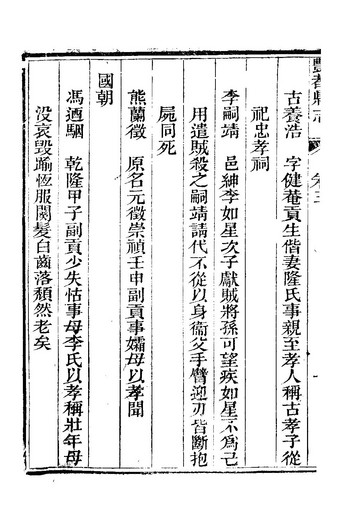 酆都縣志
卷三
古養浩 字健菴貢生偕妻隆氏事親至孝人稱古孝子從
祀忠孝祠
李嗣靖 邑紳李如星次子獻賊將孫可望疾如星不爲己
用遣賊殺之嗣靖請代不從以身衞父手臂迎刃皆斷抱
屍同死
熊蘭徵 原名元徵崇禎壬申副貢事孀母以孝聞
國朝
馮迺駰 乾隆甲子副貢少失怙事母李氏以孝稱壯年母
没哀毀踰恆服闋髮白齒落頽然老矣